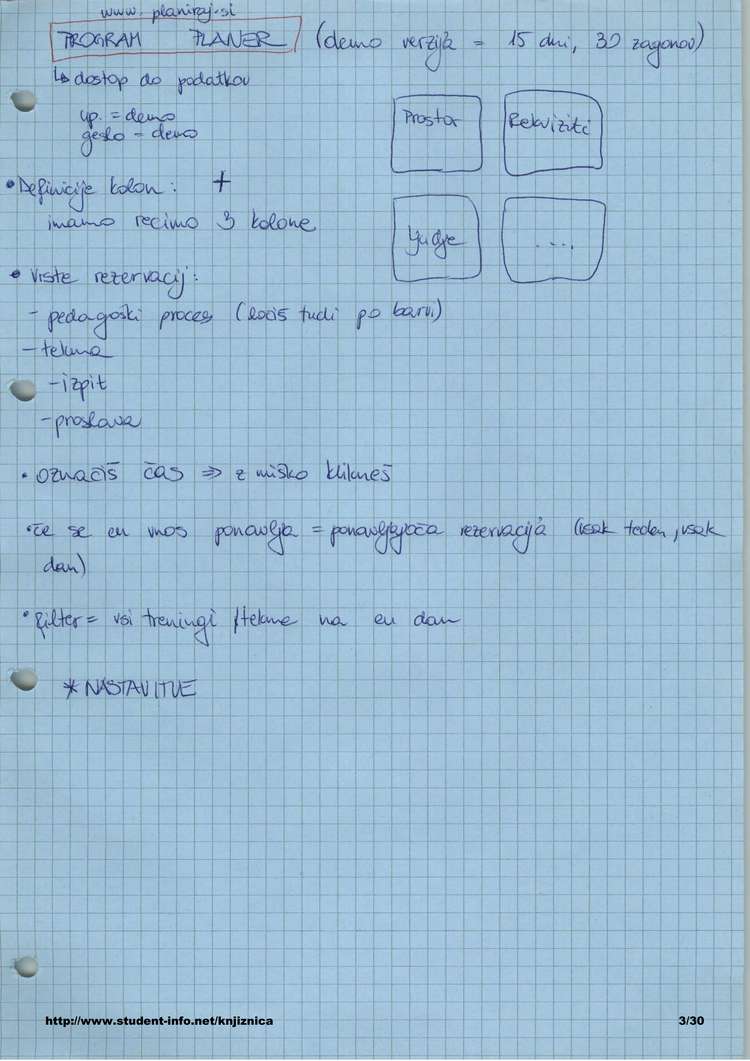 www.planiraj.si
PROGRAM PLANER (demo verzija = 15 dni, 30 zagonov)
↳ dostop do podatkov
up. = demo
geslo = demo
Prostor
Rekviziti
Ljudje
....
• Definicije kolon: +
imamo recimo 3 kolone
• Vrste rezervacij:
- pedagoški proces (ločiš tudi po barvi)
- tekma
- izpit
- proslava
• označiš čas ⇒ z miško klikneš
• če se en vnos ponavlja = ponavljajoča rezervacija (vsak teden, vsak
dan)
• filter = vsi treningi / tekme na en dan
* NASTAVITVE
http://www.student-info.net/knjiznica
3/30